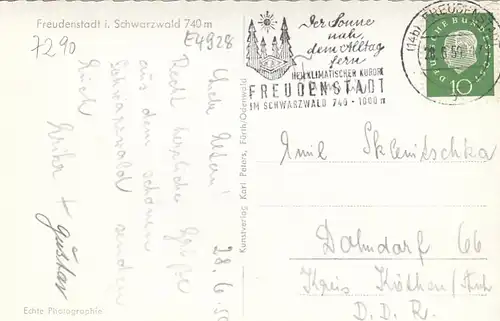 Freudenstadt i. Schwarzwald 740 m
7290
E4928
28. 6. 59
Recht herzliche Grüße
aus dem schönen
Schwarzwald senden
Euch
Erika + Gustav
Echte Photographie
Kunstverlag Karl Peters, Fürth/Odenwald
Der Sonne
nah,
dem Alltag
fern
HEILKLIMATISCHER KURORT
FREUDENSTADT
IM SCHWARZWALD 740 - 1000 m
(14b) FREUDENSTADT
DEUTSCHE BUNDESPOST
10
Emil Sklenitschka
Dohndorf 66
Kreis Köthen/Anh
D. D. R.